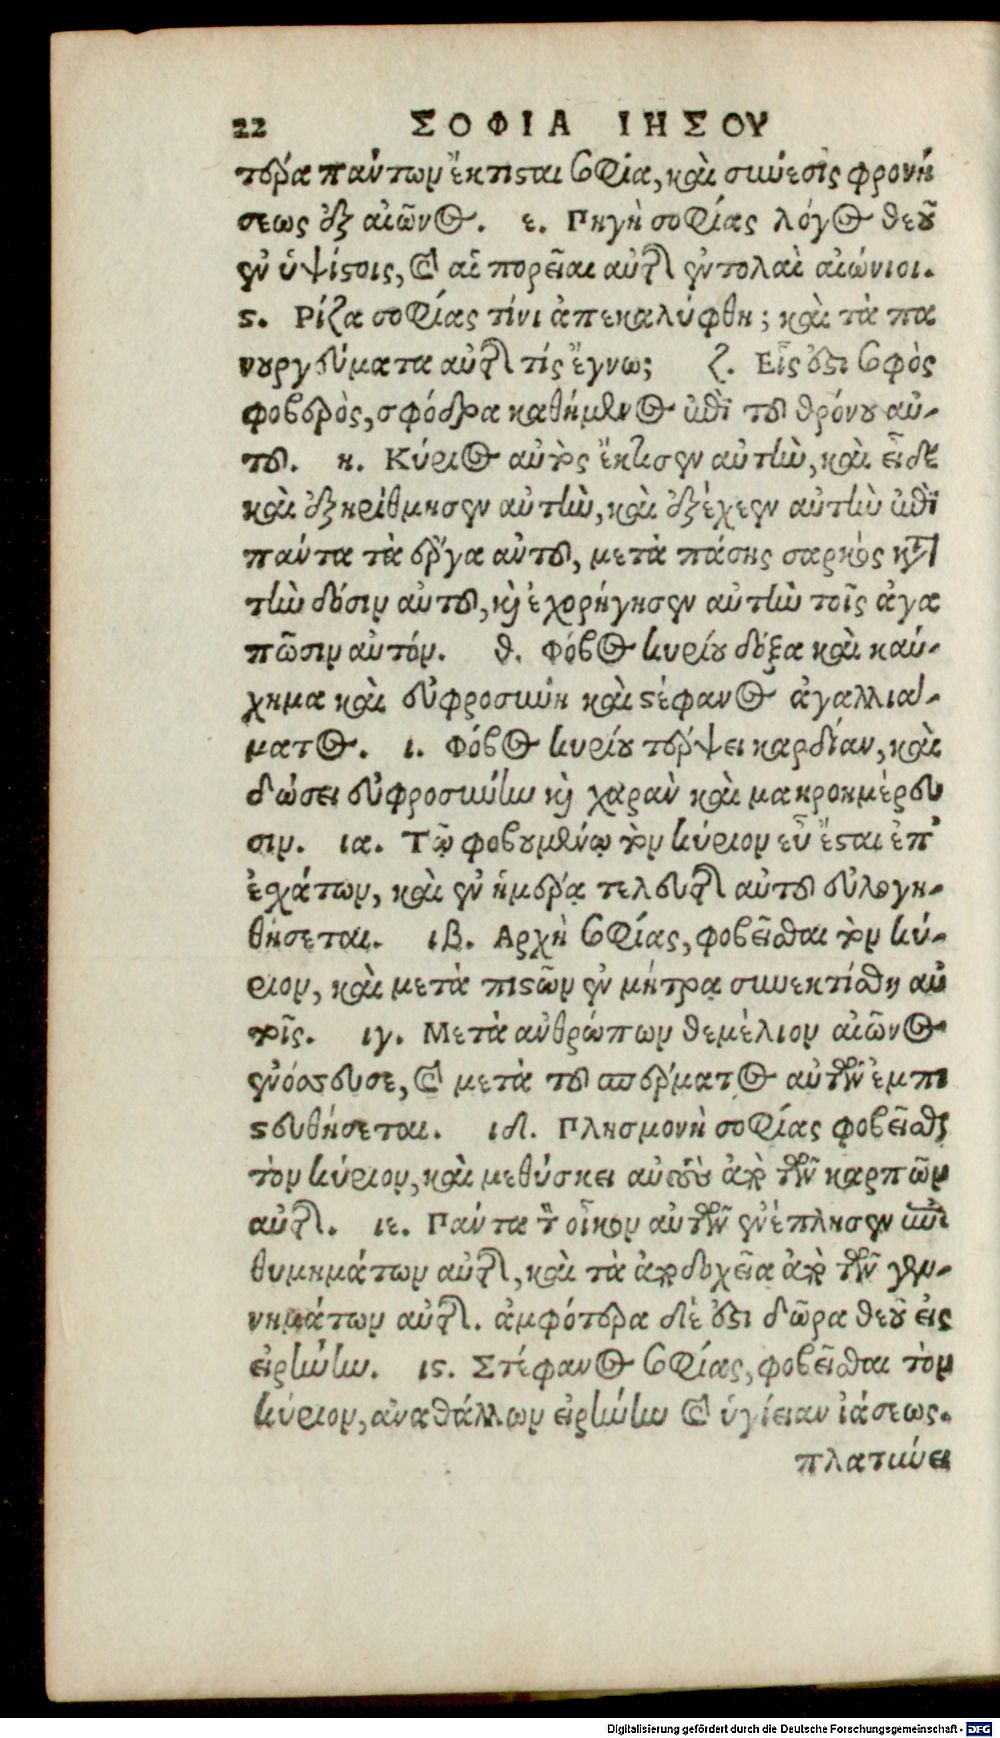 22 ΣΟΦΙΑ ΙΗΣΟΥ
τέρα πάντων ἔκτισται σοφία, καὶ σύνεσις φρονή
σεως ἐξ αἰῶνος. ε. Πηγὴ σοφίας λόγος θεοῦ
ἐν ὑψίστοις, καὶ αἱ πορεῖαι αὐτῆς ἐντολαὶ αἰώνιοι.
ϛ. Ρίζα σοφίας τίνι ἀπεκαλύφθη; καὶ τὰ πα
νουργεύματα αὐτῆς τίς ἔγνω; ζ. Εἷς ἐστι σοφὸς
φοβερὸς, σφόδρα καθήμενος ἐπὶ τοῦ θρόνου αὐ-
τοῦ. η. Κύριος αὐτὸς ἔκτισεν αὐτὴν, καὶ εἶδε
καὶ ἐξηρίθμησεν αὐτὴν, καὶ ἐξέχεεν αὐτὴν ἐπὶ
πάντα τὰ ἔργα αὐτοῦ, μετὰ πάσης σαρκὸς κατὰ
τὴν δόσιν αὐτοῦ, καὶ ἐχορήγησεν αὐτὴν τοῖς ἀγα
πῶσιν αὐτόν. θ. Φόβος κυρίου δόξα καὶ καύ-
χημα καὶ εὐφροσύνη καὶ στέφανος ἀγαλλιά-
ματος. ι. Φόβος κυρίου τέρψει καρδίαν, καὶ
δώσει εὐφροσύνην καὶ χαρὰν καὶ μακροημέρευ
σιν. ια. Τῷ φοβουμένῳ τὸν κύριον εὖ ἔσται ἐπ'
ἐσχάτων, καὶ ἐν ἡμέρᾳ τελευτῆς αὐτοῦ εὐλογη-
θήσεται. ιβ. Αρχὴ σοφίας, φοβεῖσθαι τὸν κύ-
ριον, καὶ μετὰ πιστῶν ἐν μήτρᾳ συνεκτίσθη αὐ
τοῖς. ιγ. Μετὰ ἀνθρώπων θεμέλιον αἰῶνος
ἐνόσσευσε, καὶ μετὰ τοῦ σπέρματος αὐτῶν ἐμπι
στευθήσεται. ιδ. Πλησμονὴ σοφίας φοβεῖσθαι
τὸν κύριον, καὶ μεθύσκει αὐτοὺς ἀπὸ τῶν καρπῶν
αὐτῆς. ιε. Πάντα τὸν οἶκον αὐτῶν ἐνέπλησεν ἐπι
θυμημάτων αὐτῆς, καὶ τὰ ἀποδοχεῖα ἀπὸ τῶν γεν-
νημάτων αὐτῆς. ἀμφότερα δέ ἐστι δῶρα θεοῦ εἰς
εἰρήνην. ιϛ. Στέφανος σοφίας, φοβεῖσθαι τὸν
κύριον, ἀναθάλλων εἰρήνην καὶ ὑγίειαν ἰάσεως.
πλατύνει
Digitalisierung gefördert durch die Deutsche Forschungsgemeinschaft - DFG